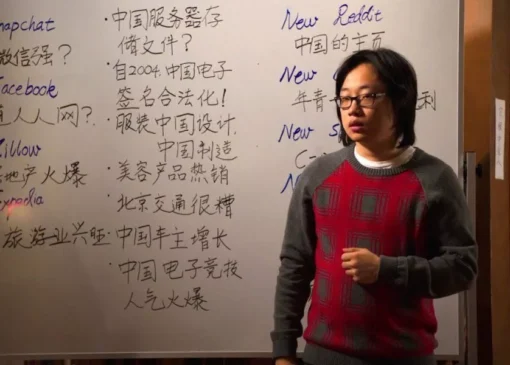 napchat
微信强?
acebook
人人网?
illow
地产火爆
xpedia
旅游业兴旺
·中国服务器存
储文件?
·自2004,中国电子
签名合法化!
·服装中国设计,
中国制造
·美容产品热销
·北京交通很糟
·中国车主增长
·中国电子竞技
人气火爆
New Reddit
中国的主页
New
年青
利
New
C-